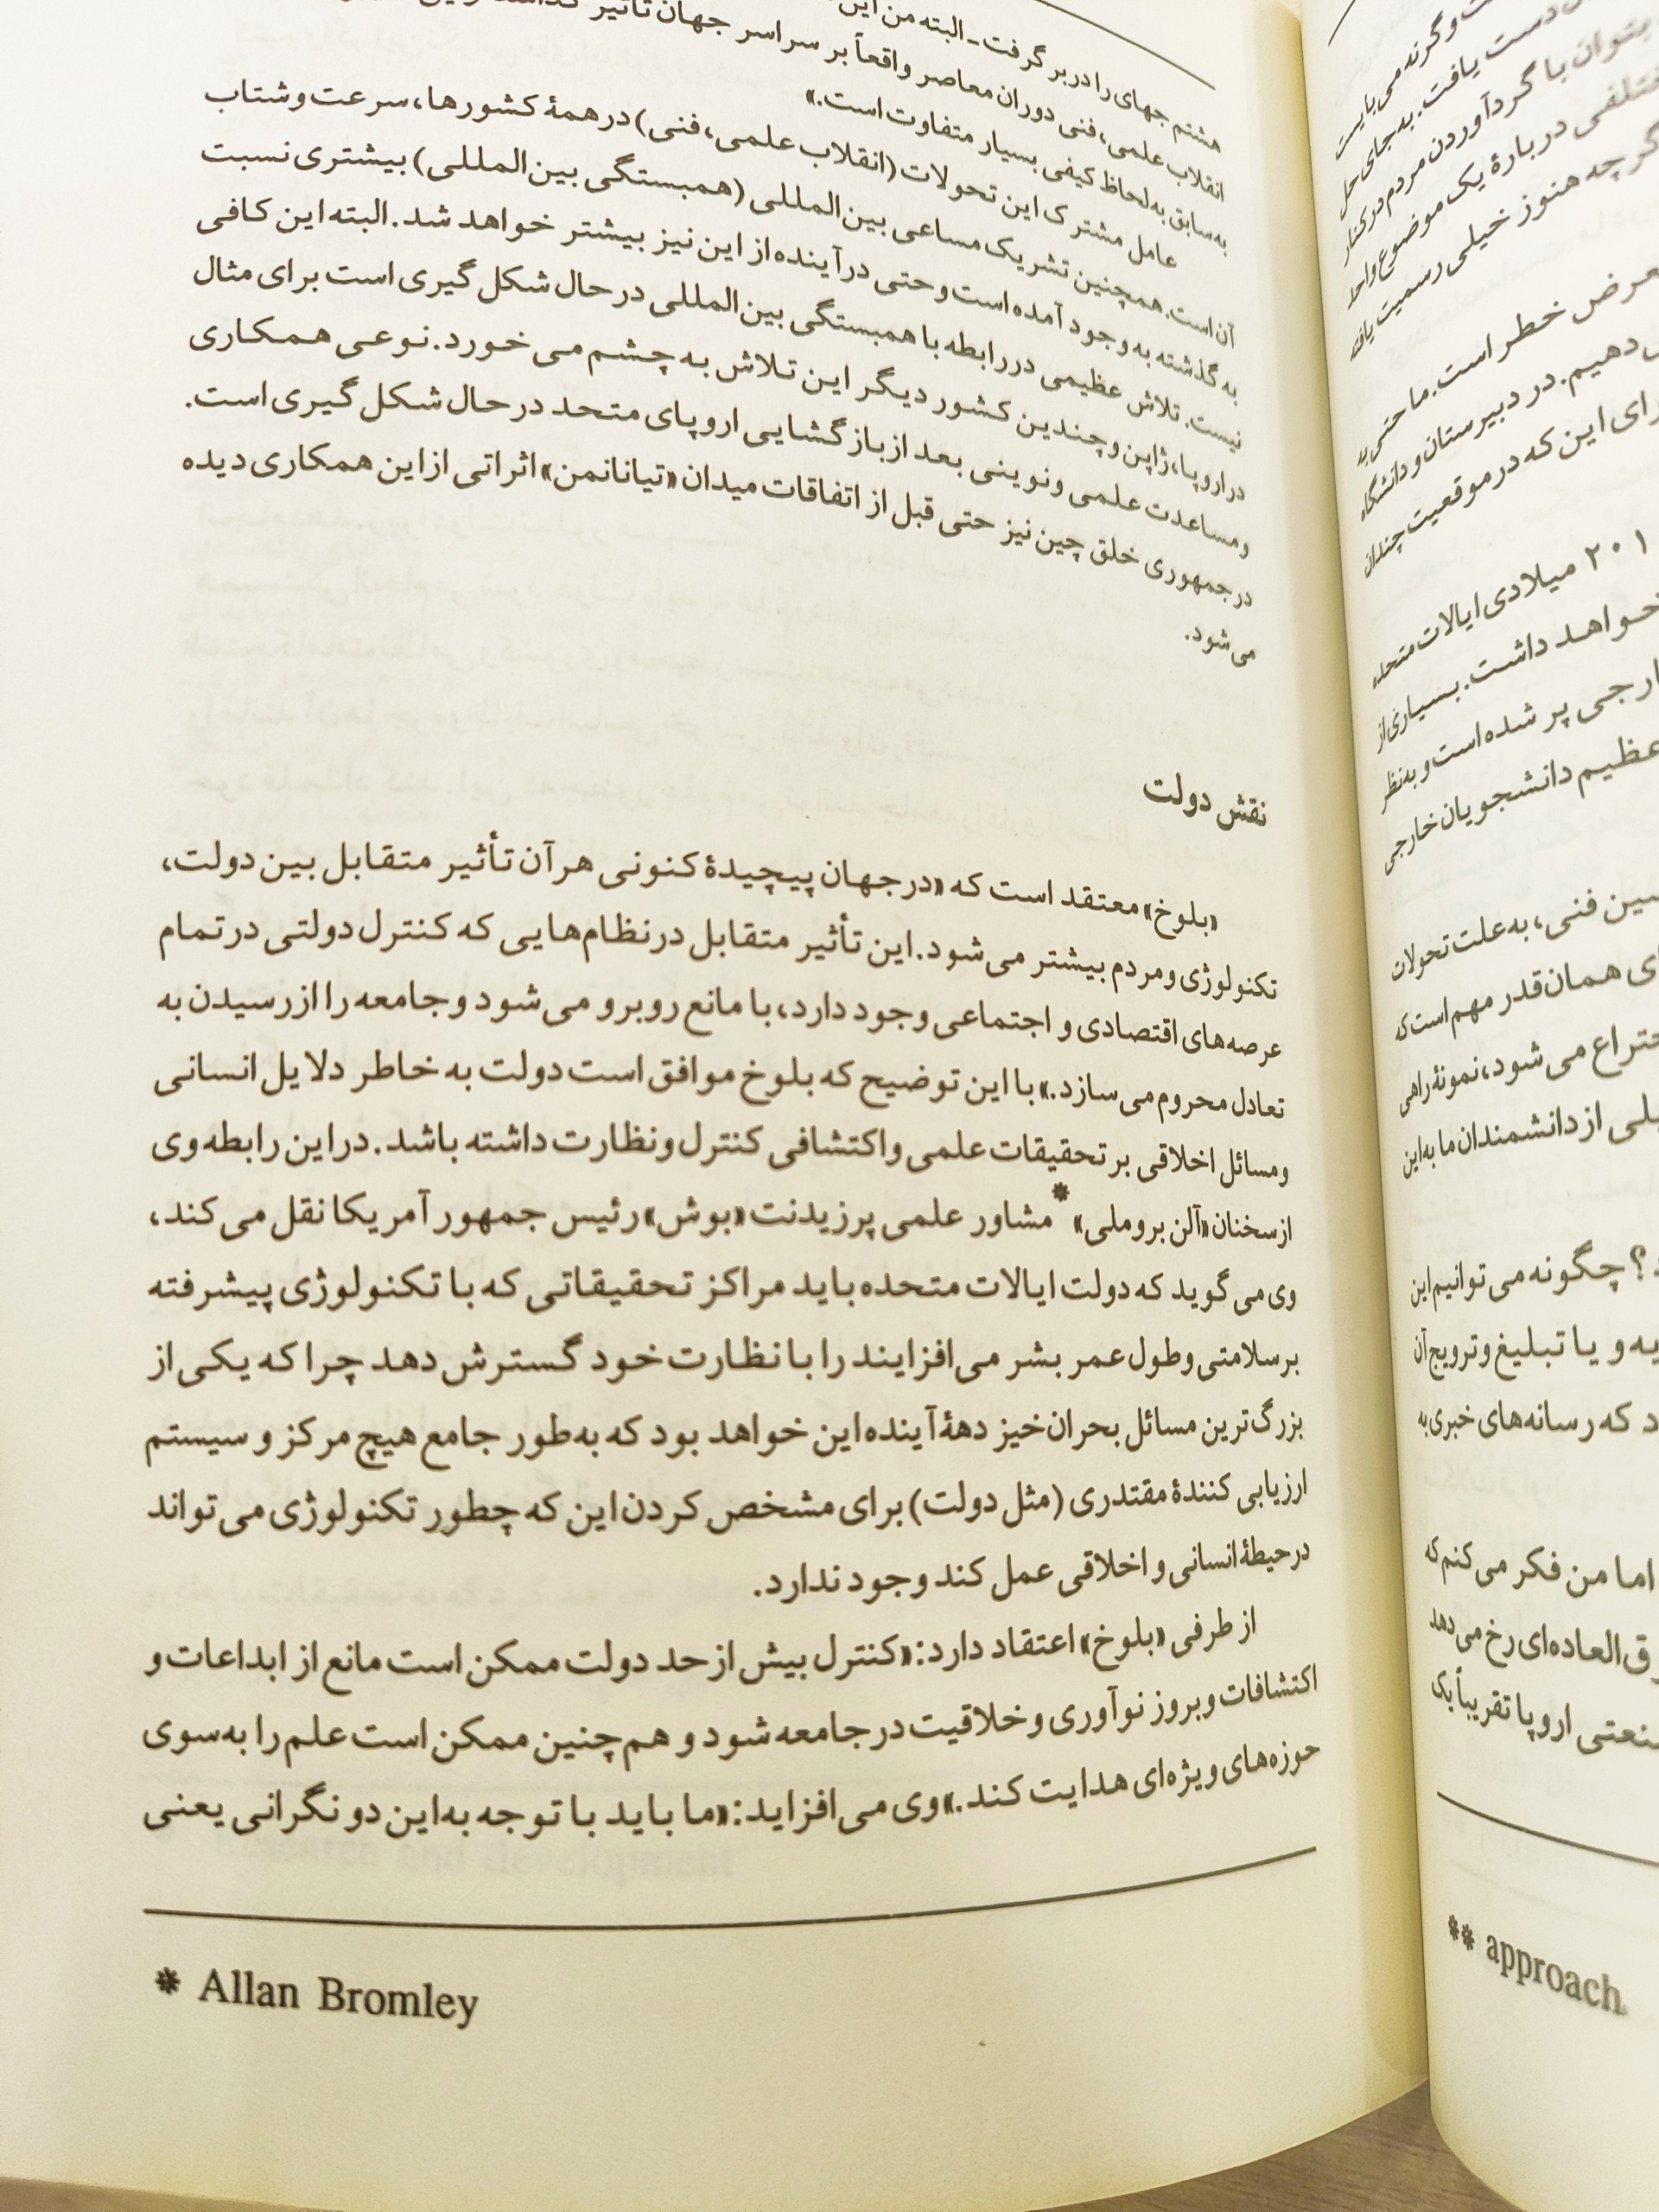 هشتم جهای را دربر گرفت ـ البته من این
انقلاب علمی، فنی دوران معاصر واقعاً بر سراسر جهان تأثیر
به سابق به لحاظ کیفی بسیار متفاوت است.»
عامل مشترک این تحولات (انقلاب علمی، فنی) در همهٔ کشورها، سرعت و شتاب
آن است. همچنین تشریک مساعی بین‌المللی (همبستگی بین‌المللی) بیشتری نسبت
به گذشته به وجود آمده است و حتی در آینده از این نیز بیشتر خواهد شد. البته این کافی
نیست. تلاش عظیمی در رابطه با همبستگی بین‌المللی در حال شکل گیری است برای مثال
در اروپا، ژاپن و چندین کشور دیگر این تلاش به چشم می خورد. نوعی همکاری
و مساعدت علمی و نوینی بعد از بازگشایی اروپای متحد در حال شکل گیری است.
در جمهوری خلق چین نیز حتی قبل از اتفاقات میدان «تیانانمن» اثراتی از این همکاری دیده
می شود.
نقش دولت
«بلوخ» معتقد است که «در جهان پیچیدهٔ کنونی هر آن تأثیر متقابل بین دولت،
تکنولوژی و مردم بیشتر می شود. این تأثیر متقابل در نظام‌هایی که کنترل دولتی در تمام
عرصه‌های اقتصادی و اجتماعی وجود دارد، با مانع روبرو می شود و جامعه را از رسیدن به
تعادل محروم می سازد.» با این توضیح که بلوخ موافق است دولت به خاطر دلایل انسانی
و مسائل اخلاقی بر تحقیقات علمی و اکتشافی کنترل و نظارت داشته باشد. در این رابطه وی
از سخنان «آلن بروملی»* مشاور علمی پرزیدنت «بوش» رئیس جمهور آمریکا نقل می کند،
وی می گوید که دولت ایالات متحده باید مراکز تحقیقاتی که با تکنولوژی پیشرفته
بر سلامتی و طول عمر بشر می افزایند را با نظارت خود گسترش دهد چرا که یکی از
بزرگ‌ترین مسائل بحران خیز دههٔ آینده این خواهد بود که به‌طور جامع هیچ مرکز و سیستم
ارزیابی کنندهٔ مقتدری (مثل دولت) برای مشخص کردن این که چطور تکنولوژی می تواند
در حیطهٔ انسانی و اخلاقی عمل کند وجود ندارد.
از طرفی «بلوخ» اعتقاد دارد: «کنترل بیش از حد دولت ممکن است مانع از ابداعات و
اکتشافات و بروز نوآوری و خلاقیت در جامعه شود و هم چنین ممکن است علم را به سوی
حوزه‌های ویژه‌ای هدایت کند.» وی می افزاید: «ما باید با توجه به این دو نگرانی یعنی
* Allan Bromley
و گرنه می بایست
دست یافت. به جای حل
بتوان با گردآوردن مردم در کنار
دربارهٔ یک موضوع واحد
گرچه هنوز خیلی رسمیت یافته
معرض خطر است. ما حتی به
دهیم. در دبیرستان و دانشگاه
برای این که در موقعیت چندان
۲۰۱ میلادی ایالات متحده
خواهد داشت. بسیاری از
پر شده است و به نظر
عظیم دانشجویان خارجی
فنی، به علت تحولات
همان قدر مهم است که
می شود، نمونهٔ راهی
از دانشمندان ما به این
؟ چگونه می توانیم این
و یا تبلیغ و ترویج آن
که رسانه‌های خبری به
اما من فکر می کنم که
رخ می دهد
اروپا تقریباً یک
** approach